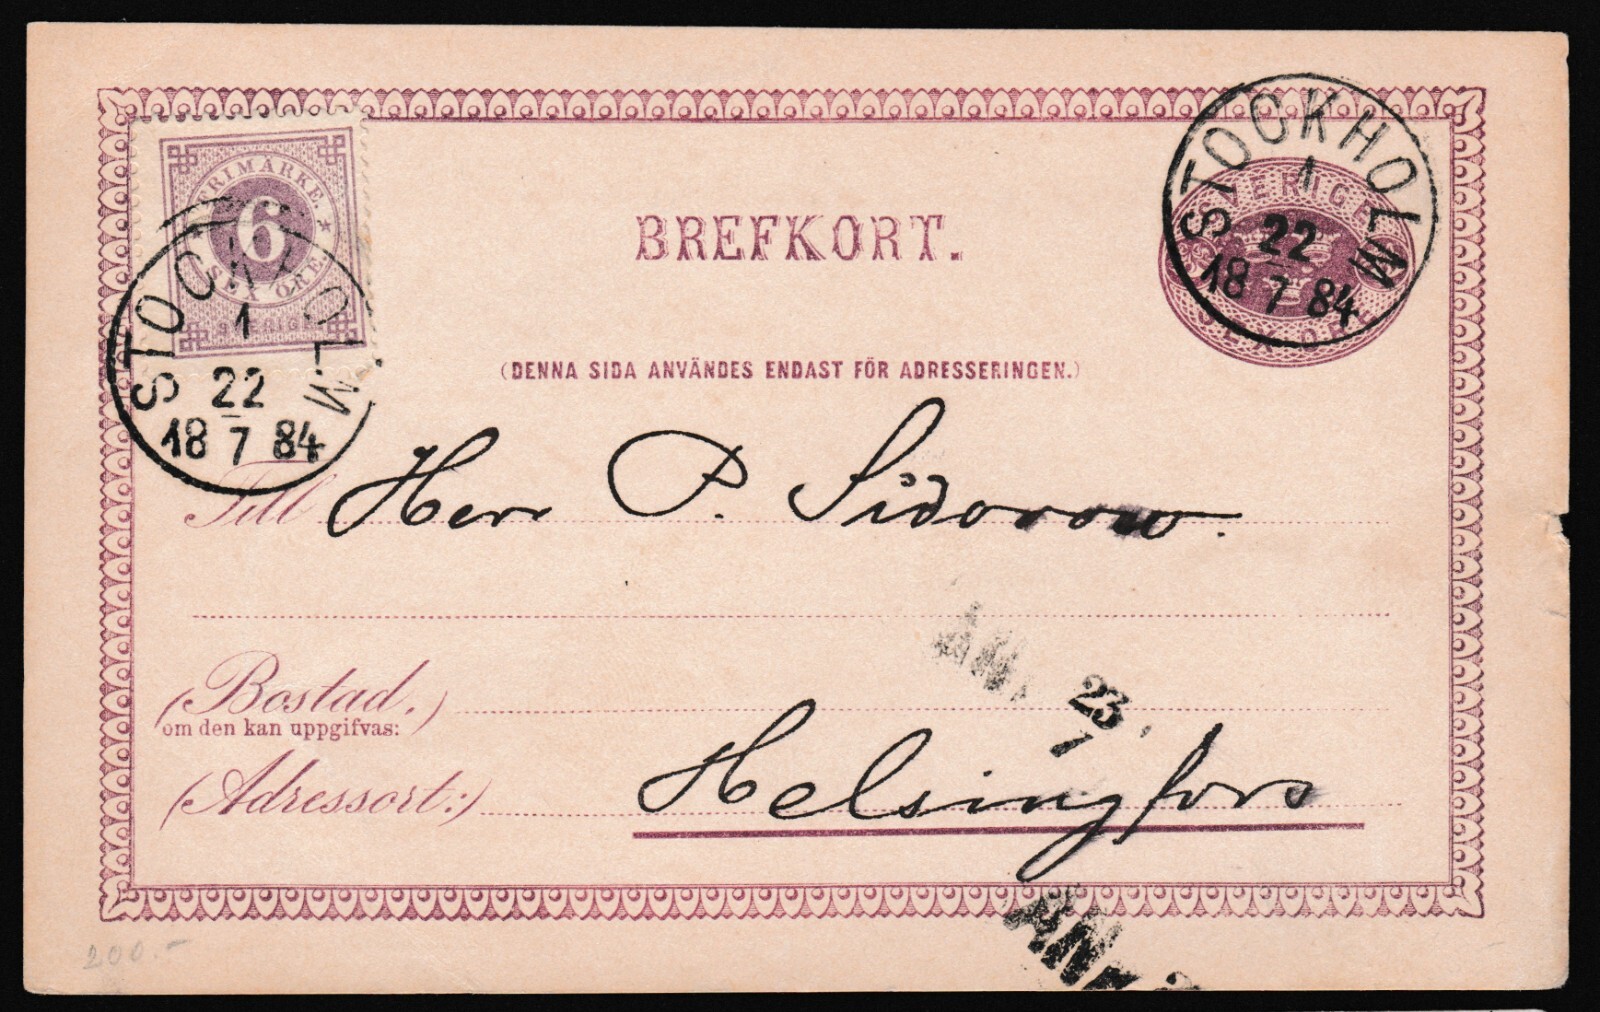 FRIMÄRKE
6
SEX ÖRE
SVERIGE
STOCKHOLM
1
22
18 7 84
STOCKHOLM
1
22
18 7 84
SVERIGE
SEX ÖRE
BREFKORT.
(DENNA SIDA ANVÄNDES ENDAST FÖR ADRESSERINGEN.)
Till Herr P. Sidorow.
ANK
23
7
(Bostad.)
om den kan uppgifvas:
(Adressort:) Helsingfors
ANK
200.-